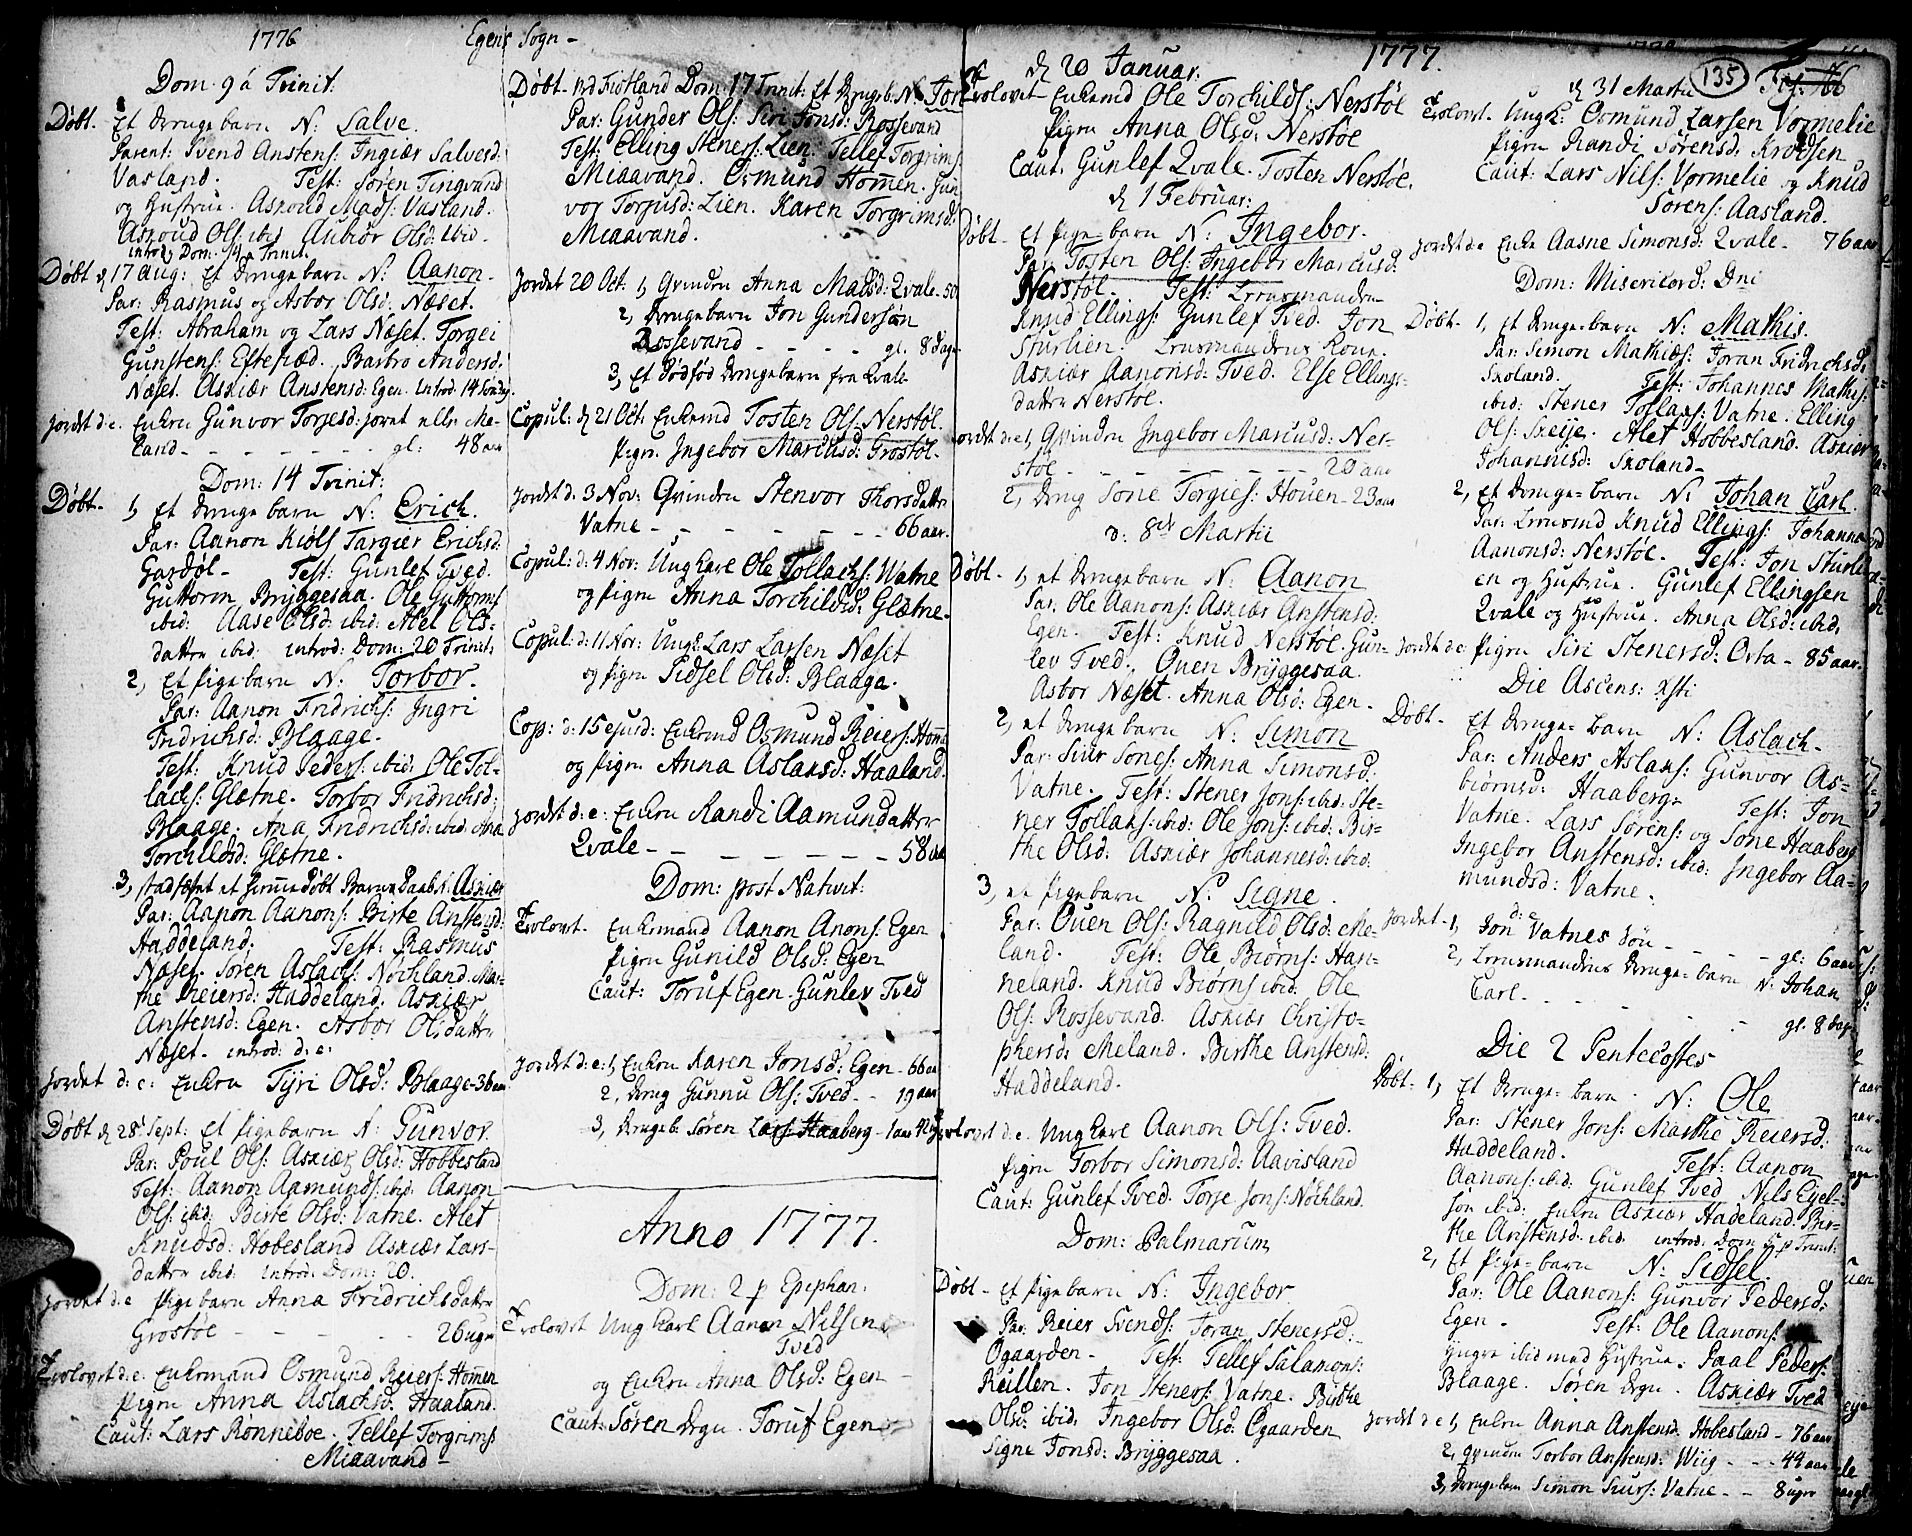 1776
Egens Sogn -
Dom. 9 à Trinit:
Døbt. Et drengebarn N: Salve.
Parent: Svend Anstens: Ingiær Salvesd:
Vasland. Test: Søren Tingvand
og Hustrue. Asroud Mads: Vasland.
Asroud Ols: ibid Aubiør Olsd: ibid.
introd. Dom. 14 a Trinit.
Døbt d 17 Aug: Et drengebarn N: Aanon.
Par: Rasmus og Asbor Olsd: Næset.
Test: Abraham og Lars Næset. Torgei
Gunstens: Eftestæd. Barbro Andersd:
Næset. Askiær Anstensd: Egen. introd. 14 Sondag.
Jordet d: e. Enken Gunvor Torjesd: Me-
land - - - - gl: 48 aar
Dom: 14 Trinit:
Døbt. 1, Et drenge barn N: Erich.
Par: Aanon Kiøls Targier Erichsd:
Gardøl - Test: Gunlef Tved.
Guttorm Bryggesaa. Ole Guttorms
ibid: Aase Olsd: ibid: Abel Ols-
datter ibid: introd: Dom: 20 Trinit:
2, Et pigebarn N: Torbor.
Par: Aanon Fridrichs: Ingri
Fridrichsd: Blaage.
Test: Knud Peders: ibid: Ole Tol-
lachs: Glætne. Torbor Fridrichsd:
Blaage. Ana Fridrichsd: ibid: Ana
Torchildsd: Glætne.
3, stadfæstet et hiemme døbt Barns Daab N: Askiær
Par: Aanon Aanons: Birte Anstensd:
Haddeland. Test: Rasmus
Næset. Søren Aslachs: Nøchland. Mar-
the Reiersd: Haddeland. Askiær
Anstensd: Egen. Asbor Olsdatter
Næset. introd: d: e:
Jordet d: e: Enken Tyri Olsd: Blaage - 36 aar
Døbt d 28 Sept: Et pigebarn N: Gunvor.
Par: Poul Ols: Askiær Olsd: Hobbesland
Test: Aanon Aamunds: ibid: Aanon
Ols: ibid: Birte Olsd: Vatne. Alet
Knudsd: Hobesland Askiær Lars-
datter ibid: introd: Dom: 20.
Jordet d: e pigebarn Anna Fridrichsdatter
Grostøe - - - - 26 uger
Trolovet d: e. Enkemand Osmund Reiers: Homen
Pigen Anna Aslachsd: Haaland.
Caut: Lars Rønneboe. Tellef Torgrims
Miaavand -
Døbt - ved Fiotland Dom: 17 Trinit: Et drengeb: N: Jon
Par: Gunder Ols: Siri Jonsd: Rossevand
Test: Elling Steners: Lien. Tellef Torgrims:
Miaavand. Osmund Homen. Gun
vor Torjusd: Lien. Karen Torgrimsd:
Miaavand.
Jordet 20 Oct: 1, Qvinden Anna Malsd: Qvale - 50
2, drengebarn Jon Gundersøn
Rossevand - - - - gl. 8 dage
3, Et dødfød drengebarn fra Qvale
Copul: d 21 Oct: Enkemd Tosten Ols: Nerstøl.
Pigen Ingebor Marcusd: Grostøl.
Jordet d: 3 Nov: Qvinden Stenvor Thorsdatter
Vatne - - - - - 66 aar.
Copul: d: 4 Nov: Ungkarl Ole Tollachs: Watne
og pigen Anna Torchildsd: Glætne.
Copul: d: 11 Nov: Ungk: Lars Larsen Næset
og pigen Sidsel Olsd: Blaaga.
Cop: d: 15 ejusd: Enkemd Osmund Reiers: Hom
og pigen Anna Aslaksd: Haaland.
Jordet d: e: Enken Randi Aamundatter
Qvale - - - - - 58 aar
Dom: post Nativit:
Trolovet. Enkemand Aanon Anons: Egen
Pigen Gunild Olsd: Egen
Caut: Toruf Egen Gunlev Tved
Jordet d: e: 1, Enken Karen Jonsd: Egen - 66 aar
2, dreng Gunnu Ols: Tved - - 19 aar
3, drengeb: Søren Lars: Haaberg - 1 aar
Anno 1777.
Dom: 2 p Epiphan:
Trolovet Ungkarl Aanon Nilsen
Tved
og Enken Anna Olsd: Egen -
Caut: Søren degn. Toruf Egen
1777.
135
d 20 Januar:
Trolovet Enkemd Ole Torchilds: Nerstøl
Pigen Anna Olsd: Nerstøe
Caut. Gunlef Qvale. Tosten Nerstøe.
d 1 Februar:
Døbt. Et pige-barn N: Ingebor.
Par: Tosten Ols: Ingebor Marcusd:
Nerstøl. Test: Lensmanden
Knud Ellings: Gunlef Tved. Jon
Sturlien. Lensmandens Kone.
Askiær Aanonsd: Tved. Else Ellings-
datter Nerstøl.
Jordet d: e 1, Qvinden Ingebor Marcusd: Ner-
støl - - - - - 20 aar
2, dreng Sone Torgies: Houen - 23 aar
d: 8de Martii
Døbt - 1, et drengebarn N: Aanon
Par: Ole Aanons: Askiær Anstensd:
Egen. Test: Knud Nerstøl. Gun-
lev Tved. Ouen Bryggesaa.
Asbor Næset. Anna Olsd: Egen.
2, et drenge-barn N: Simon
Par: Siur Sones: Anna Simonsd:
Vatne. Test: Stener Jons: ibid: Ste-
ner Tollaks: ibid: Ole Jons: ibid: Bir-
the Olsd: Askiær Johannesd: ibid:
3, et pigebarn N: Signe.
Par: Ouen Ols: Ragnild Olsd: Me-
land. Test: Ole Biørns: Han-
neland. Knud Biørns: ibid: Ole
Ols: Rossevand. Askiær Christo-
phersd: Meland. Birthe Anstensd:
Haddeland.
Trolovet d: e. Ungkarl Aanon Ols: Tved.
Pigen Torbor Simonsd: Aavisland
Caut: Gunlef Tved. Torje Jons: Nøchland.
Dom: Palmarum
Døbt - et pigebarn N: Ingebor
Par: Reier Svends: Joran Stenersd:
Ogaarden - Test: Tellef Salamons:
Reillen. Jon Steners: Vatne. Birthe
Olsd: ibid: Ingebor Olsd: Ogaarden
Signe Jonsd: Bryggesaa.
d 31 Martii
Trolovet. Ungk: Osmund Larsen Vormelie
Pigen Randi Sørensd: Krodsen
Caut: Lars Nils: Vormelie og Knud
Sørens: Aasland.
Jordet d: e Enke Aasne Simonsd: Qvale - 76 aar
Dom: Misericord: Dni
Døbt. 1, Et drengebarn N: Mathis.
Par: Simon Mathiæs: Joran Fridrichsd:
Skoland. Test: Johannes Mathis:
ibid: Stener Tollaks: Vatne. Elling
Ols: Skeije. Alet Hobbesland. Askiær
Johannesd: Skoland -
2, Et drenge-barn N: Johan Carl.
Par: Lensmd Knud Ellings: Johanna
Aanonsd: Nerstøl. Test: Jon Sturli
en og Hustrue. Gunlef Ellingsen
Qvale og Hustrue. Anna Olsd: ibid:
Jordet d: e Pigen Siri Stenersd: Orta - 85 aar.
Die Ascens: Xsti
Døbt. Et drenge-barn N: Aslach.
Par: Anders Aslaks: Gunvor As-
biørnsd: Haaberg. Test: Jon
Vatne. Lars Sørens: og Sone Haaberg
Ingebor Anstensd: ibid: Ingebor Aa-
mundsd: Vatne.
Jordet - d: e 1, Jon Vatnes søn - - - gl: 6 aar
2, Lensmandens drenge-barn N: Johan
Carl. - - - - gl. 8 dage
Die 2 Pentecostes
Døbt - 1, Et drenge-barn N: Ole
Par: Stener Jons: Marthe Reiersd:
Haddeland. Test: Aanon
Aanons: ibid: Gunlef Tved Nils Eyel-
søn ibid: Enken Askiær Hadeland. Bir-
the Anstensd: ibid. introd: Dom 5 p Trinit:
2, Et Pige-barn N: Sidsel.
Par: Ole Aanons: Gunvor Pedersd:
Egen - Test: Ole Aanons:
yngre ibid med Hustrue. Paal Peders:
Blaage. Søren degn. Askiær Tved
Jordet d: e 1, Enken Anna Anstensd: Hobesland - 76 aar
2, qvinden Torbor Anstensd: Wiig - - - 44 aar
3, drengebarn Simon Siurs: Vatne - - 8 uger